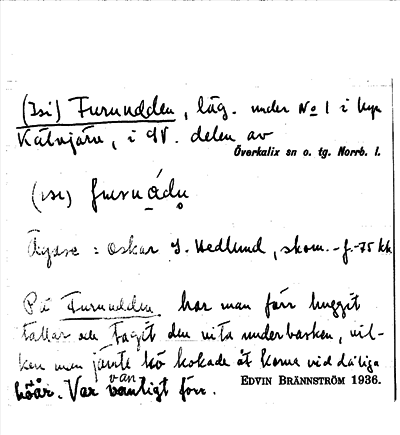 (Isi) Furuudden, läg. under No 1 i byn
Kälvjärv, i NV. delen av
Överkalix sn o. tg. Norrb. l.
(ısı) furuådn
: Oskar J. Hedlund, skom. - f. -75
På Furuudden har man förr huggit
tallar och tagit den vita underbarken, vil-
ken man jämte kö kokade åt korna vid dåliga
höår. Var vanligt förr. van
EDVIN BRÄNNSTRÖM 1936.